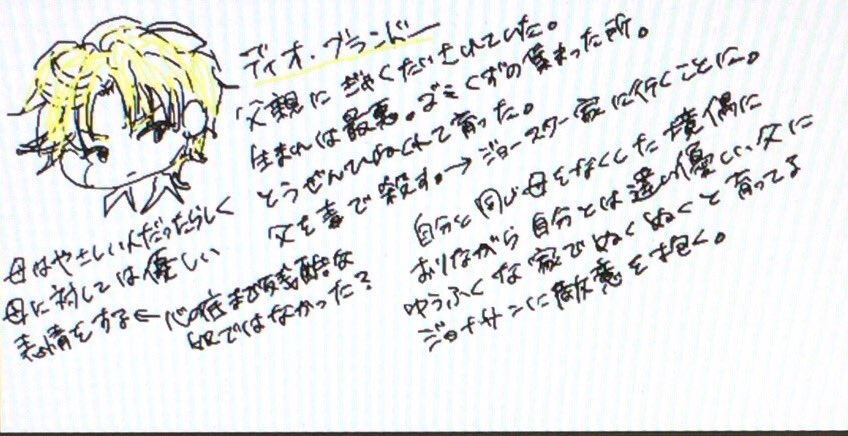 ディオ・ブランドー
父親にぎゃくたいされていた。
生まれは最悪。ゴミくずの集まった所。
とうぜんひねくれて育った。
父を毒で殺す。→ジョースター家に行くことに。
母はやさしい人だったらしく
母に対しては優しい
表情をする←心の底まで残酷な
奴ではなかった?
自分と同じ母をなくした境偶に
おりながら自分とは違い優しい父に
ゆうふくな家でぬくぬくと育ってる
ジョナサンに敵意を抱く。